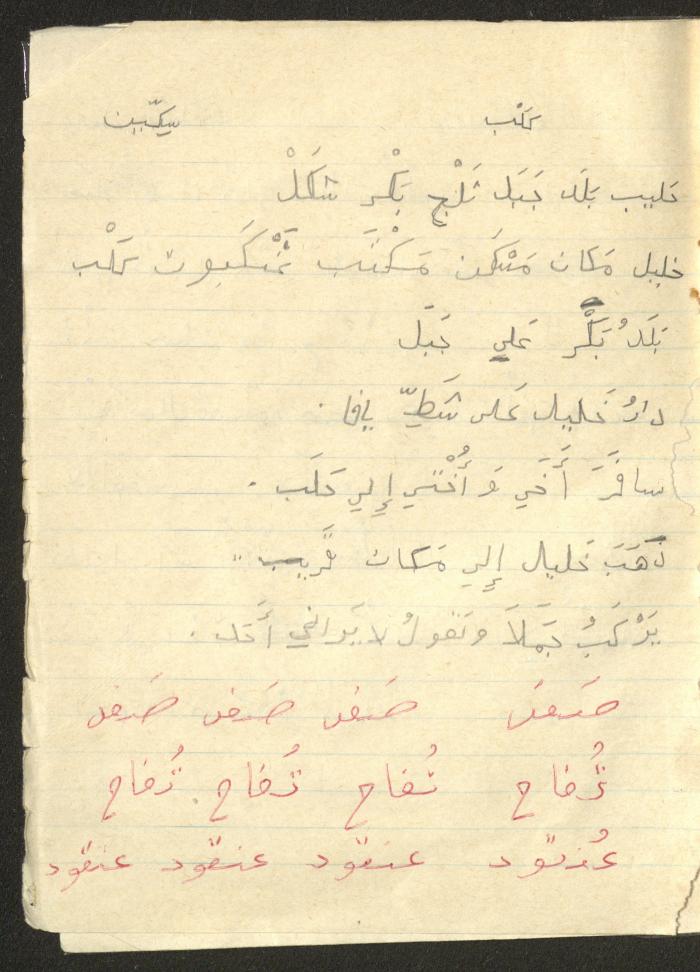 كَلْب سِكّين
حَليب بَلَد جَبَل ثَلْج بَكْر شَكْلْ
خليل مَكان مَسْكَن مَكْتَب عَنْكَبوت كَلْب
بَلَدُ بَكْر عَلى جَبَل
دارُ خَليل عَلى شَطِّ يافا .
سافَرَ أَخي وَ أُخْتي إِلى حَلَب .
ذَهَبَ خَليل إِلى مَكان قَريب ..
يَرْكَبُ جَمَلاً وَ يَقولُ لا يَراني أَحَد .
صَيفي صيفي صيفي
تُفاح تُفاح تُفاح تُفاح
عُنقود عنقود عنقود عنقود